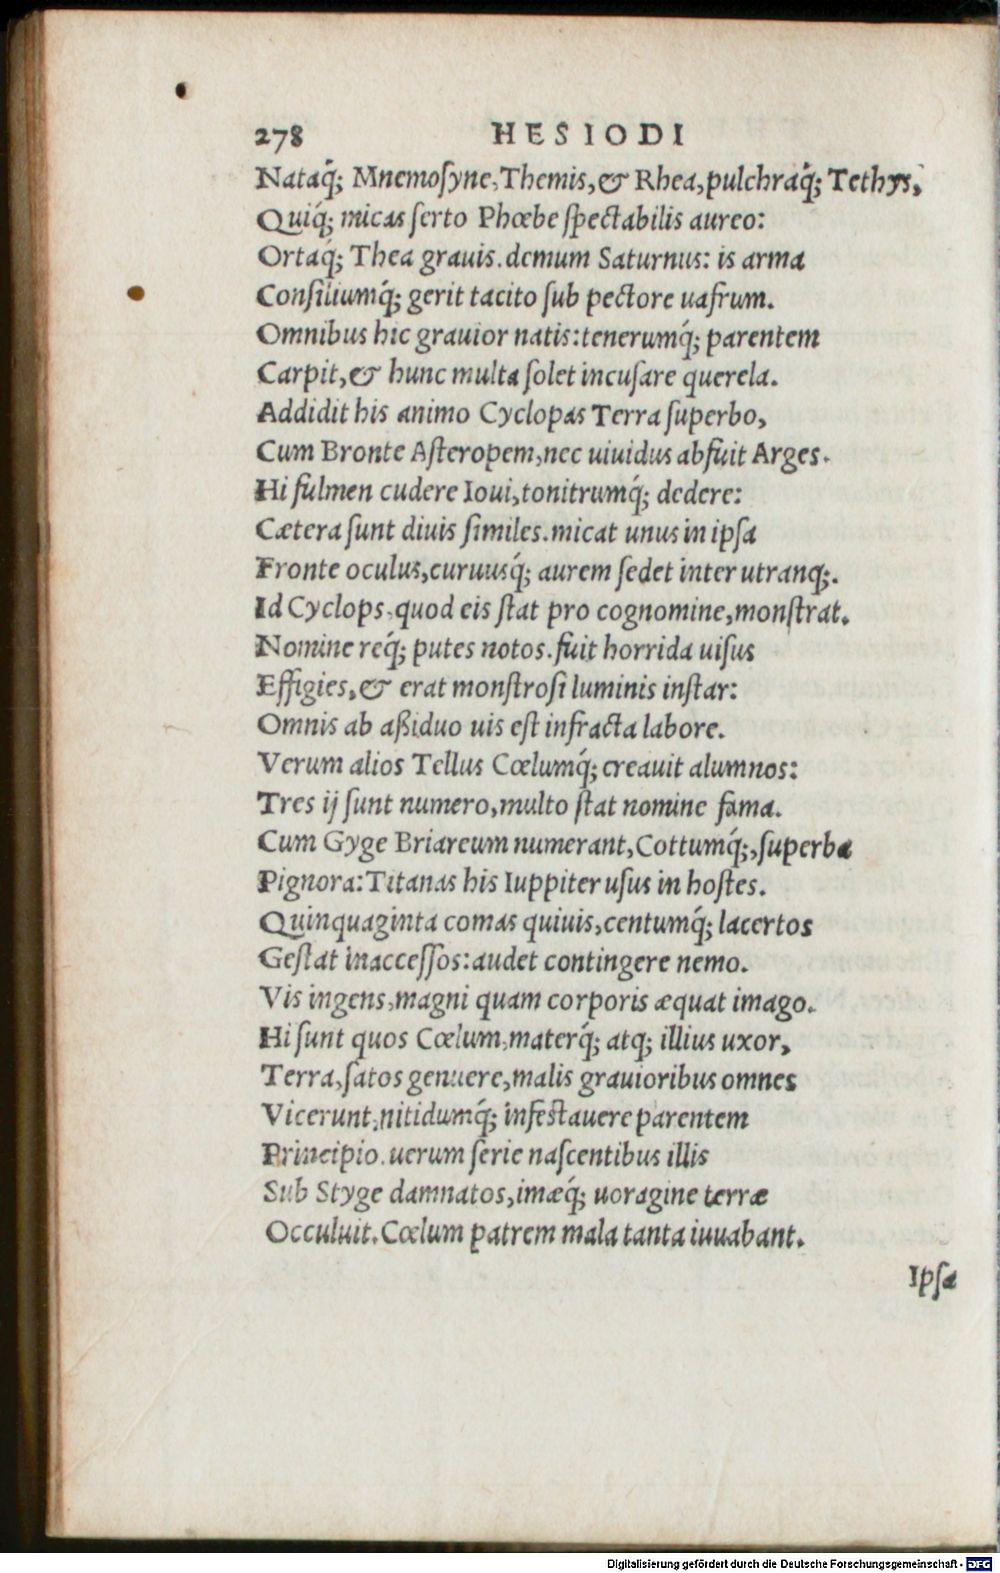 278 HESIODI
Nataq́; Mnemoſyne, Themis, & Rhea, pulchraq́; Tethys,
Quiq́; micas ſerto Phœbe ſpectabilis aureo:
Ortaq́; Thea grauis. demum Saturnus: is arma
Conſiliumq́; gerit tacito ſub pectore uafrum.
Omnibus hic grauior natis: tenerumq́; parentem
Carpit, & hunc multa ſolet incuſare querela.
Addidit his animo Cyclopas Terra ſuperbo,
Cum Bronte Aſteropem, nec uiuidus abfuit Arges.
Hi fulmen cudere Ioui, tonitrumq́; dedere:
Cætera ſunt diuis ſimiles. micat unus in ipſa
Fronte oculus, curuusq́; aurem ſedet inter utranq;.
Id Cyclops, quod eis ſtat pro cognomine, monſtrat.
Nomine req́; putes notos. fuit horrida uiſus
Effigies, & erat monſtroſi luminis inſtar:
Omnis ab aßiduo uis eſt infracta labore.
Verum alios Tellus Cœlumq́; creauit alumnos:
Tres ij ſunt numero, multo ſtat nomine fama.
Cum Gyge Briareum numerant, Cottumq́;, ſuperba
Pignora: Titanas his Iuppiter uſus in hoſtes.
Quinquaginta comas quiuis, centumq́; lacertos
Geſtat inacceſſos: audet contingere nemo.
Vis ingens, magni quam corporis æquat imago.
Hi ſunt quos Cœlum, materq́; atq; illius uxor,
Terra, ſatos genuere, malis grauioribus omnes
Vicerunt, nitidumq́; infeſtauere parentem
Principio. uerum ſerie naſcentibus illis
Sub Styge damnatos, imæq́; uoragine terræ
Occuluit. Cœlum patrem mala tanta iuuabant.
Ipſa
Digitalisierung gefördert durch die Deutsche Forschungsgemeinschaft - DFG